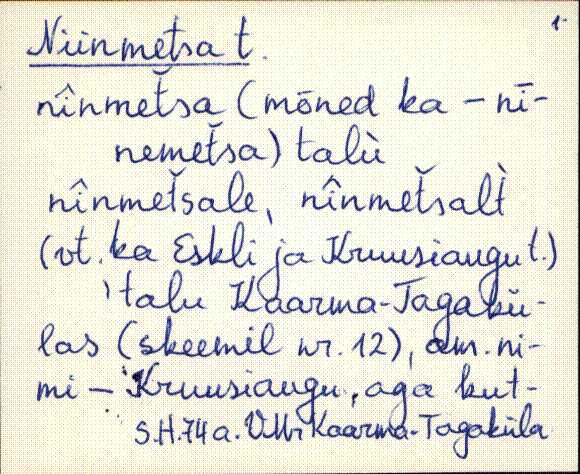 1.
Niinmetsa t.
nînmet̆sa (mōned ka – nī-
nemet̆sa) talù
nînmet̆sale, nînmet̆salt̀
(vt. ka Eskli ja Kruusiaugu t.)
talu Kaarma-Tagakü-
las (skeemil nr. 12), am. ni-
mi – Kruusiaugu, aga kut-
S.H. 74 a. V.Mr Kaarma-Tagaküla